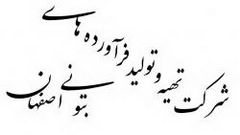 شرکت تهیه و تولید فرآورده های
بتونی اصفهان